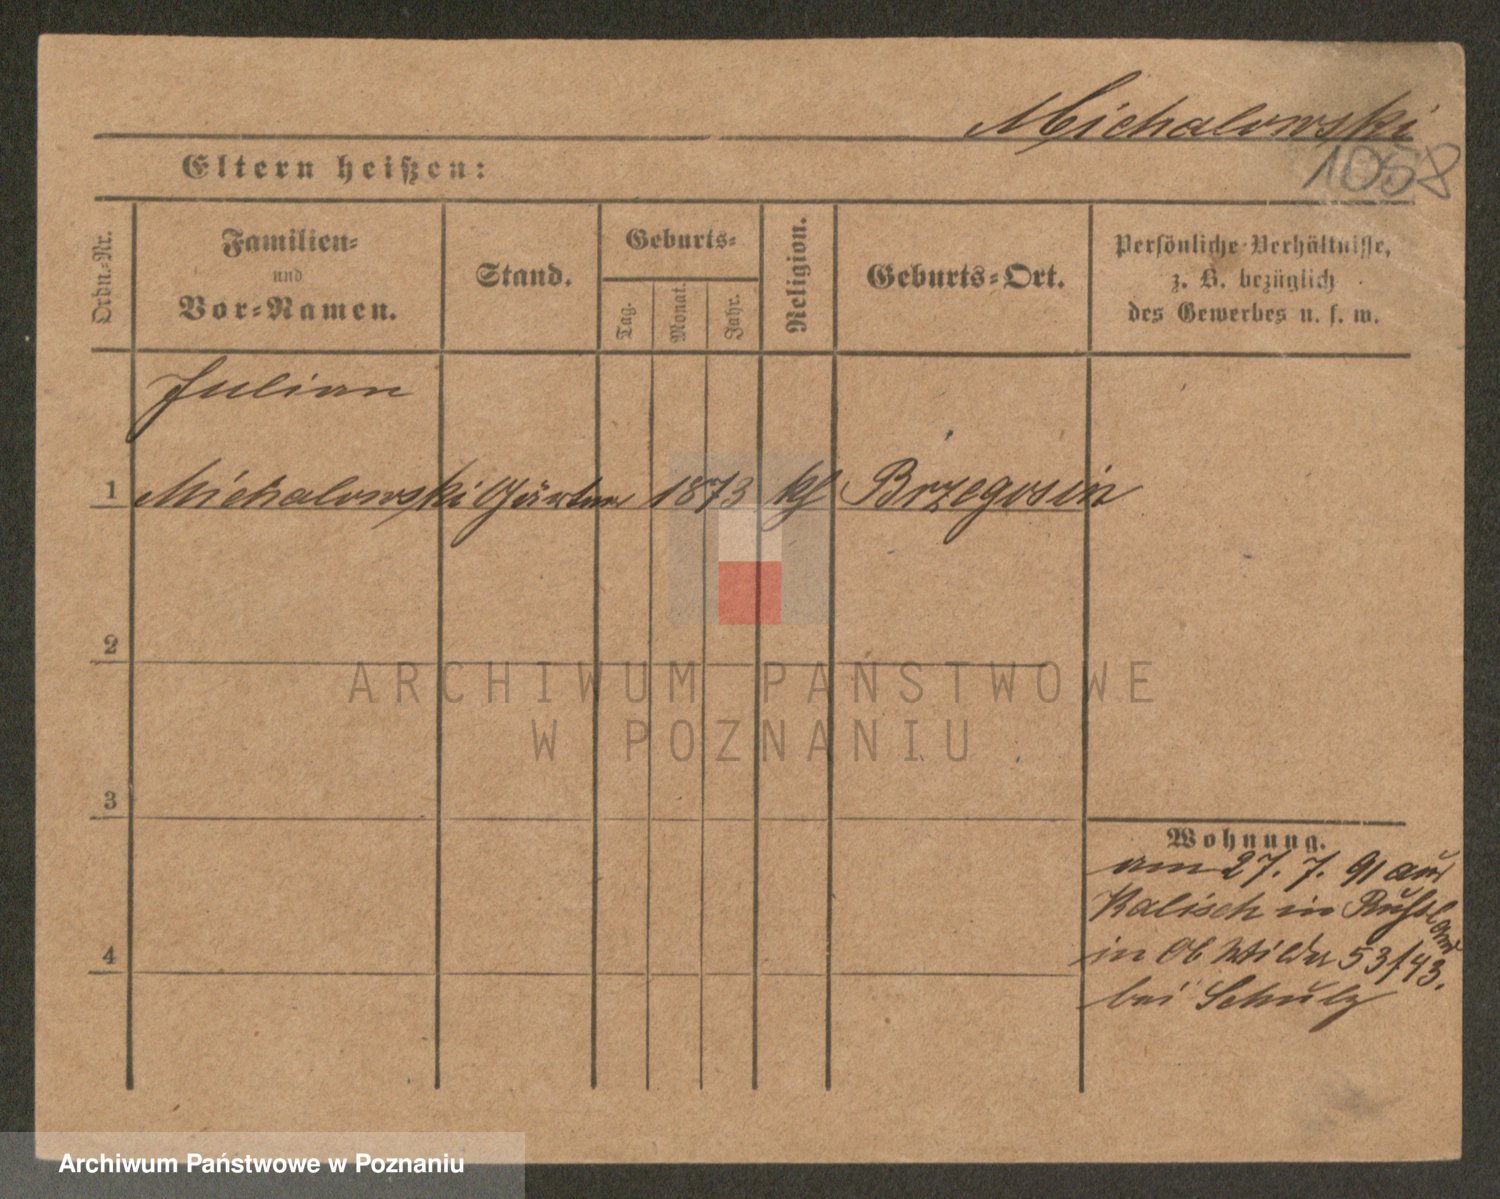 Michalowski
1058
Eltern heißen:
Ordn.-Nr.
Familien-
und
Vor-Namen.
Stand.
Geburts-
Tag.
Monat.
Jahr.
Religion.
Geburts-Ort.
Persönliche Verhältnisse,
z. B. bezüglich
des Gewerbes u. s. w.
Julian
1 Michalowski Gärtner 1873 kf Brzegosin
2
ARCHIWUM PAŃSTWOWE
W POZNANIU
3
Wohnung.
am 27. 7. 91 aus
Kalisch in Rußland
4
in Ob Wilda 53/43.
bei Schulz
Archiwum Państwowe w Poznaniu